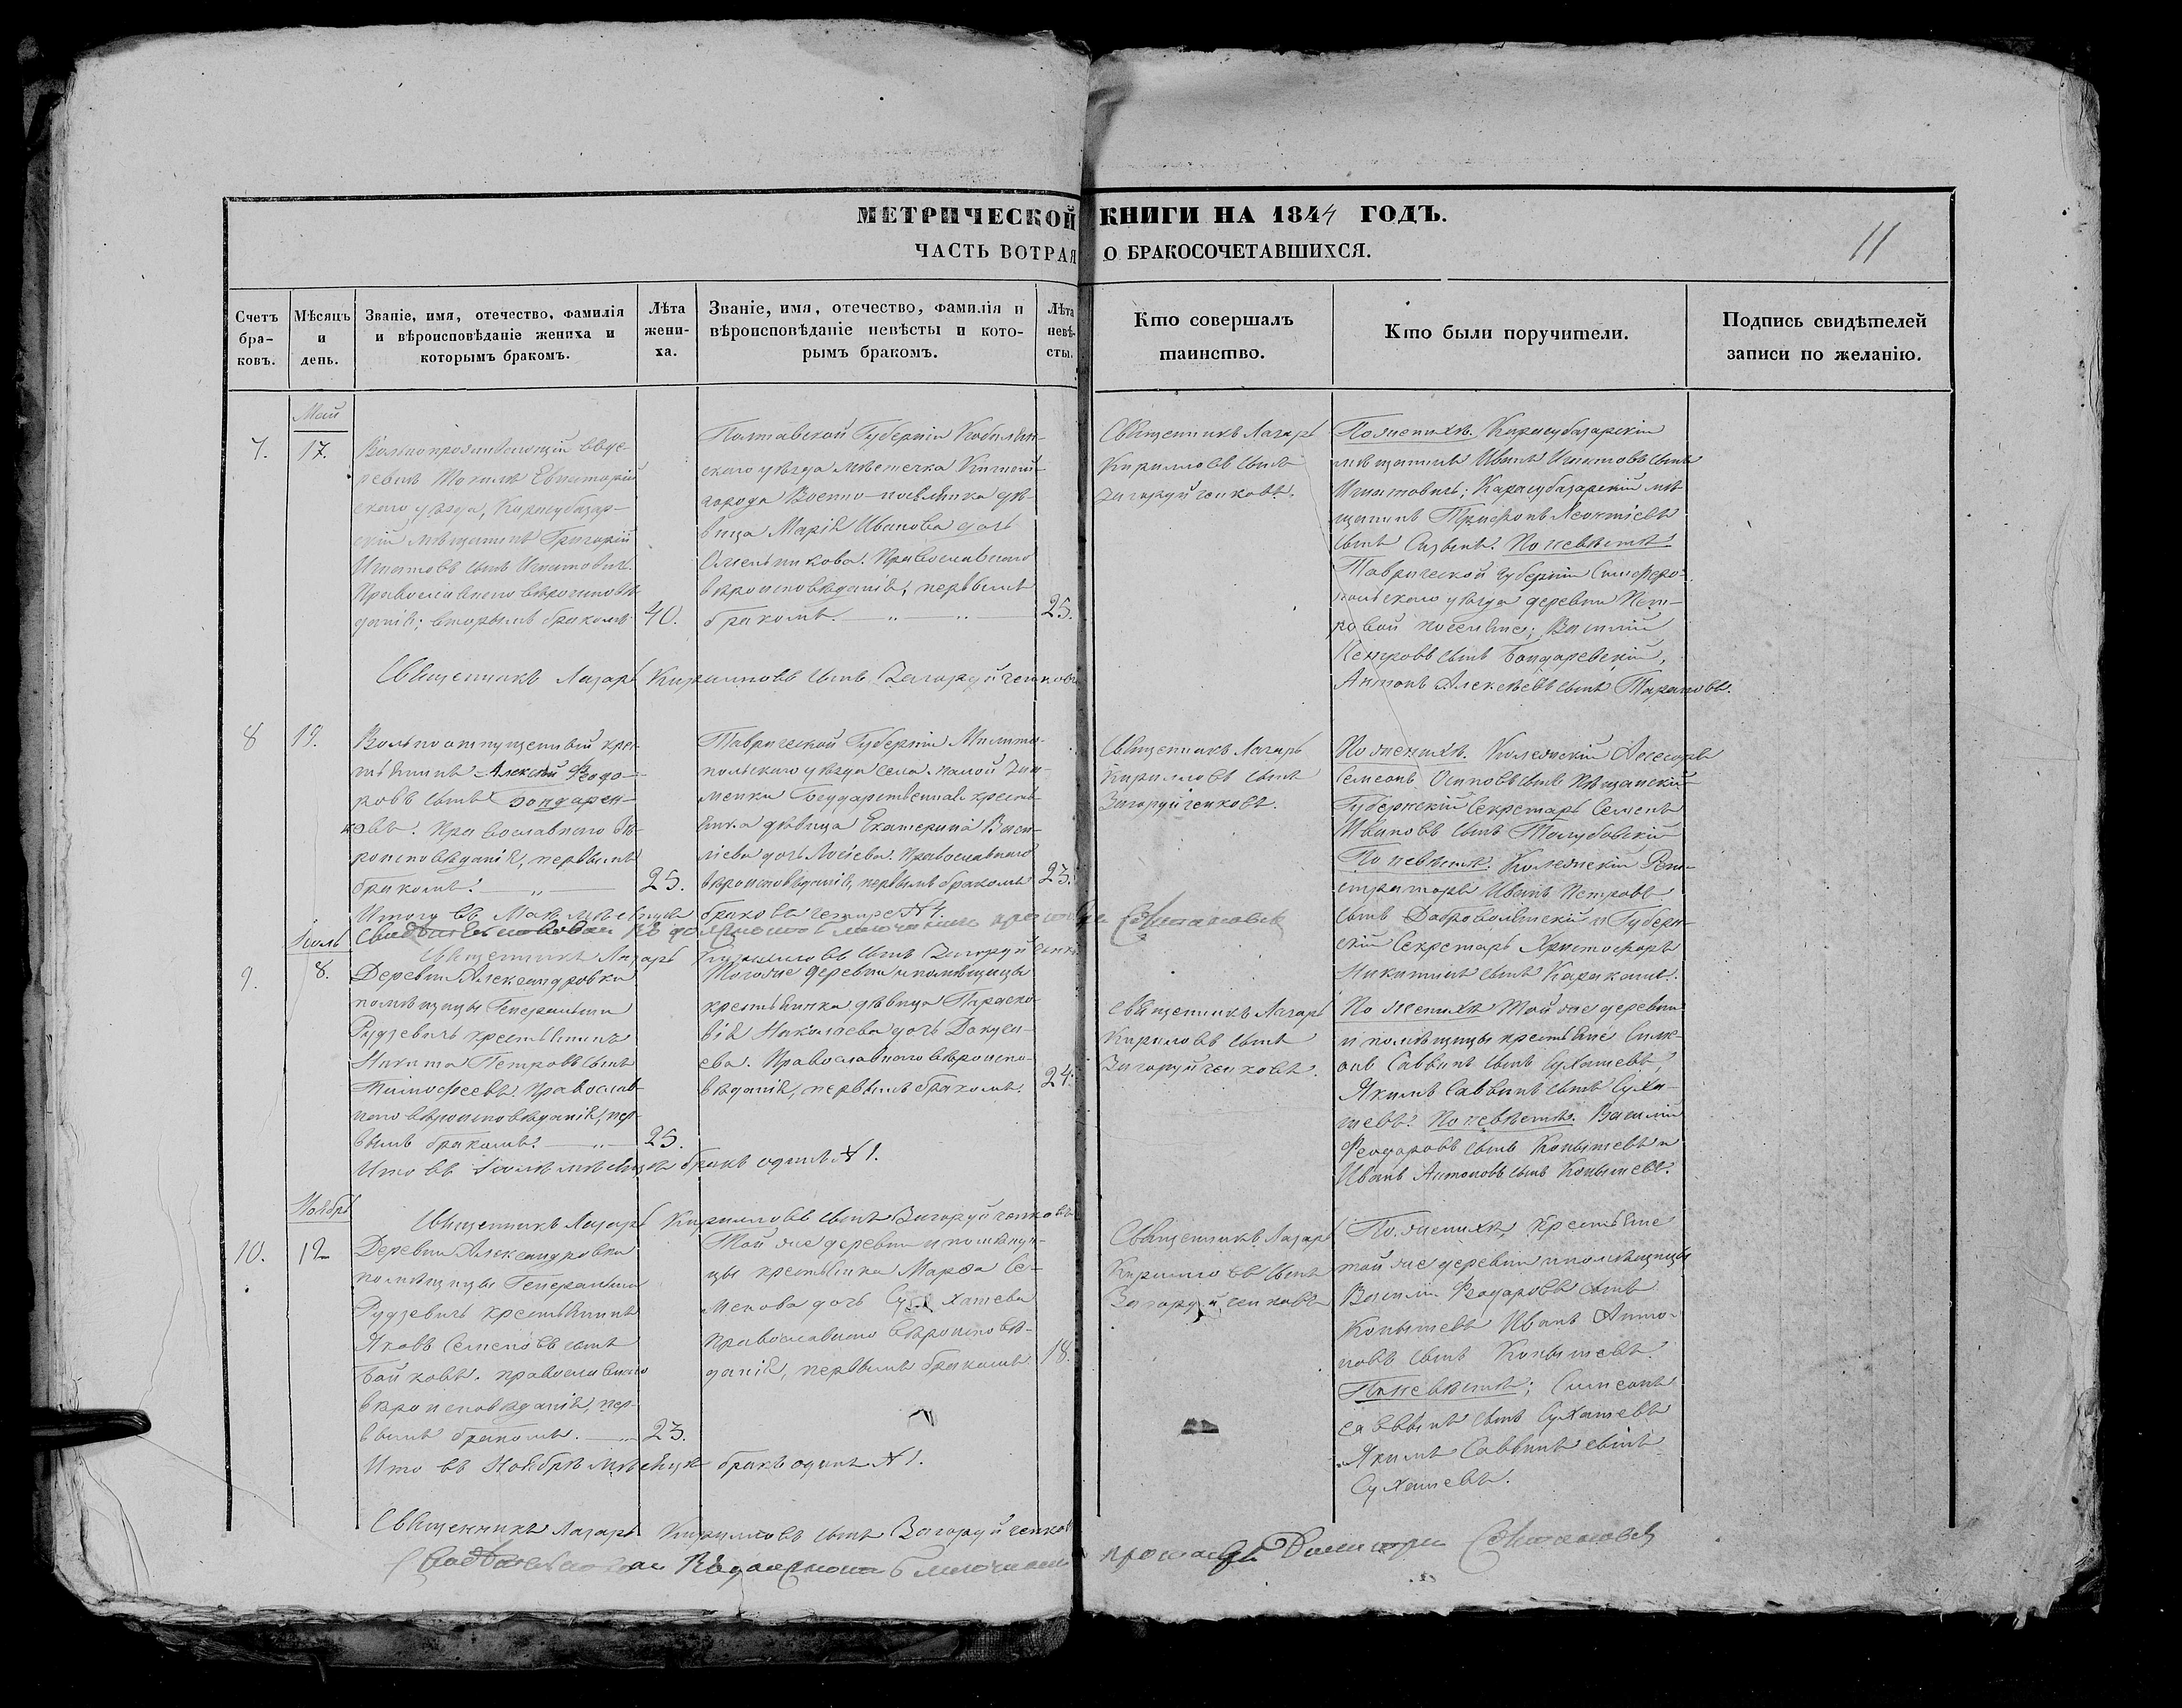 МЕТРИЧЕСКОЙ КНИГИ НА 1844 ГОДЪ.
ЧАСТЬ ВОТРАЯ О БРАКОСОЧЕТАВШИХСЯ.
11
Счетъ бра-ковъ.
Мѣсяцъ и день.
Званіе, имя, отечество, фамилія и вѣроисповѣданіе жениха и которымъ бракомъ.
Лѣта жени-ха.
Званіе, имя, отечество, фамилія и вѣроисповѣданіе невѣсты и кото-рымъ бракомъ.
Лѣта невѣ-сты.
Кто совершалъ таинство.
Кто были поручители.
Подпись свидѣтелей записи по желанію.
Май
7.
17.
Вольнопроживающій въ де-
ревнѣ Евпаторій
скаго уѣзда, Карасубазар-
скій мѣщанинъ Григорій
Игнатовъ сынъ Игнатовичъ.
Православнаго вѣроисповѣ
данія; вторымъ бракомъ.
40.
Полтавской Губерніи Кобыляк-
скаго уѣзда мѣстечка
города Военно-поселянка дѣ-
вица Марія Иванова дочь
Омельникова. Православнаго
вѣроисповѣданія, первымъ
бракомъ.
25.
Священникъ Лазарь
Кирилловъ сынъ
Загоруйченковъ.
По женихѣ. Карасубазарскій
мѣщанинъ Иванъ Игнатовъ сынъ
Игнатовичъ; Карасубазарскій мѣ-
щанинъ Трифонъ Леонтіевъ
сынъ По невѣстѣ
Таврической губерніи Симферо-
польскаго уѣзда деревни Пет-
ровой поселяне; Василій
Петровъ сынъ Бондаревскій,
Антонъ Алексѣевъ сынъ Тарановъ.
Священникъ Лазарь Кирилловъ сынъ Загоруйченковъ
8
19.
Вольноотпущенный крес-
тьянинъ Алексѣй Федо-
ровъ сынъ Бондарен-
ковъ. Православнаго вѣ-
роисповѣданія, первымъ
бракомъ.
25.
Таврической Губерніи Мелито-
польскаго уѣзда села малой Зна-
менки Государственная кресть-
янка дѣвица Екатерина Васи-
ліева дочь Православнаго
вѣроисповѣданія, первымъ бракомъ
23.
Священникъ Лазарь
Кирилловъ сынъ
Загоруйченковъ.
По женихѣ. Колежскій Асесоръ
Семеонъ Осиповъ сынъ
Губернскій Секретарь Семенъ
Ивановъ сынъ
По невѣстѣ. Колежскій Реги-
страторъ Иванъ Петровъ
сынъ Доброволскій и Губерн-
скій Секретарь Христофоръ
Никитинъ сынъ Каракашъ.
Итого въ Маѣ мѣсяцѣ браковъ четыре № 4.
Священникъ Лазарь Кирилловъ сынъ Загоруйченковъ
Іюль
9.
8.
Деревни Александровки
помѣщицы Генеральши
Рудзевичъ крестьянинъ
Никита Петровъ сынъ
Тимофеевъ. Православ-
наго вѣроисповѣданія, пер-
вымъ бракомъ.
25.
Той же деревни и помѣщицы
крестьянка дѣвица Параско-
вія Николаева дочь
ева. Православнаго вѣроиспо-
вѣданія, первымъ бракомъ.
24.
Священникъ Лазарь
Кириловъ сынъ
Загоруйченковъ.
По женихѣ той же деревни
и помѣщицы крестьяне Симе-
онъ Саввинъ сынъ Сухатевъ,
Якимъ Саввинъ сынъ Суха-
тевъ. По невѣстѣ. Василій
Феодоровъ сынъ Копытевъ и
Иванъ Антоновъ сынъ Копытевъ.
Итого въ Іюлѣ мѣсяцѣ бракъ одинъ № 1.
Священникъ Лазарь Кирилловъ сынъ Загоруйченковъ
Ноябрь
10.
12
Деревни Александровки
помѣщицы Генеральши
Рудзевичъ крестьянинъ
Яковъ Семеновъ сынъ
Байковъ. православнаго
вѣроисповѣданія, пер-
вымъ бракомъ.
23.
Той же деревни и помѣщи-
цы крестьянка Марфа Се-
менова дочь Сухатева
православнаго вѣроисповѣ-
данія, первымъ бракомъ
18.
Священникъ Лазарь
Кирилловъ сынъ
Загоруйченковъ
По женихѣ, крестьяне
той же деревни и помѣщицы
Василій Феодоровъ сынъ
Копытевъ Иванъ Анто-
новъ сынъ Копытевъ.
По невѣстѣ; Симеонъ
Саввинъ сынъ Сухатевъ
Якимъ Саввинъ сынъ
Сухатевъ.
Итого въ Ноябрѣ мѣсяцѣ бракъ одинъ № 1.
Священникъ Лазарь Кирилловъ сынъ Загоруйченковъ
протоіерей Димитрій